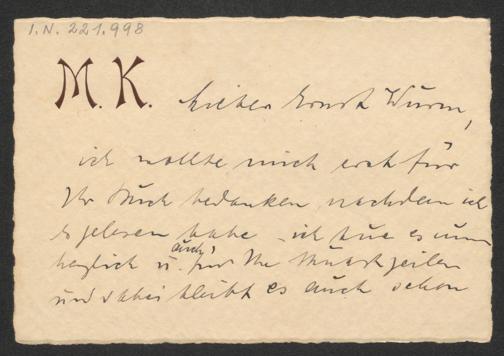 I.N. 221.998
M. K. Lieber Ernst Wurm,
ich wollte mich erst für
Ihr Buch bedanken, nachdem ich
es gelesen habe – ich tue es nun
auch,
herzlich u. für Ihre
und dabei bleibt es auch schon